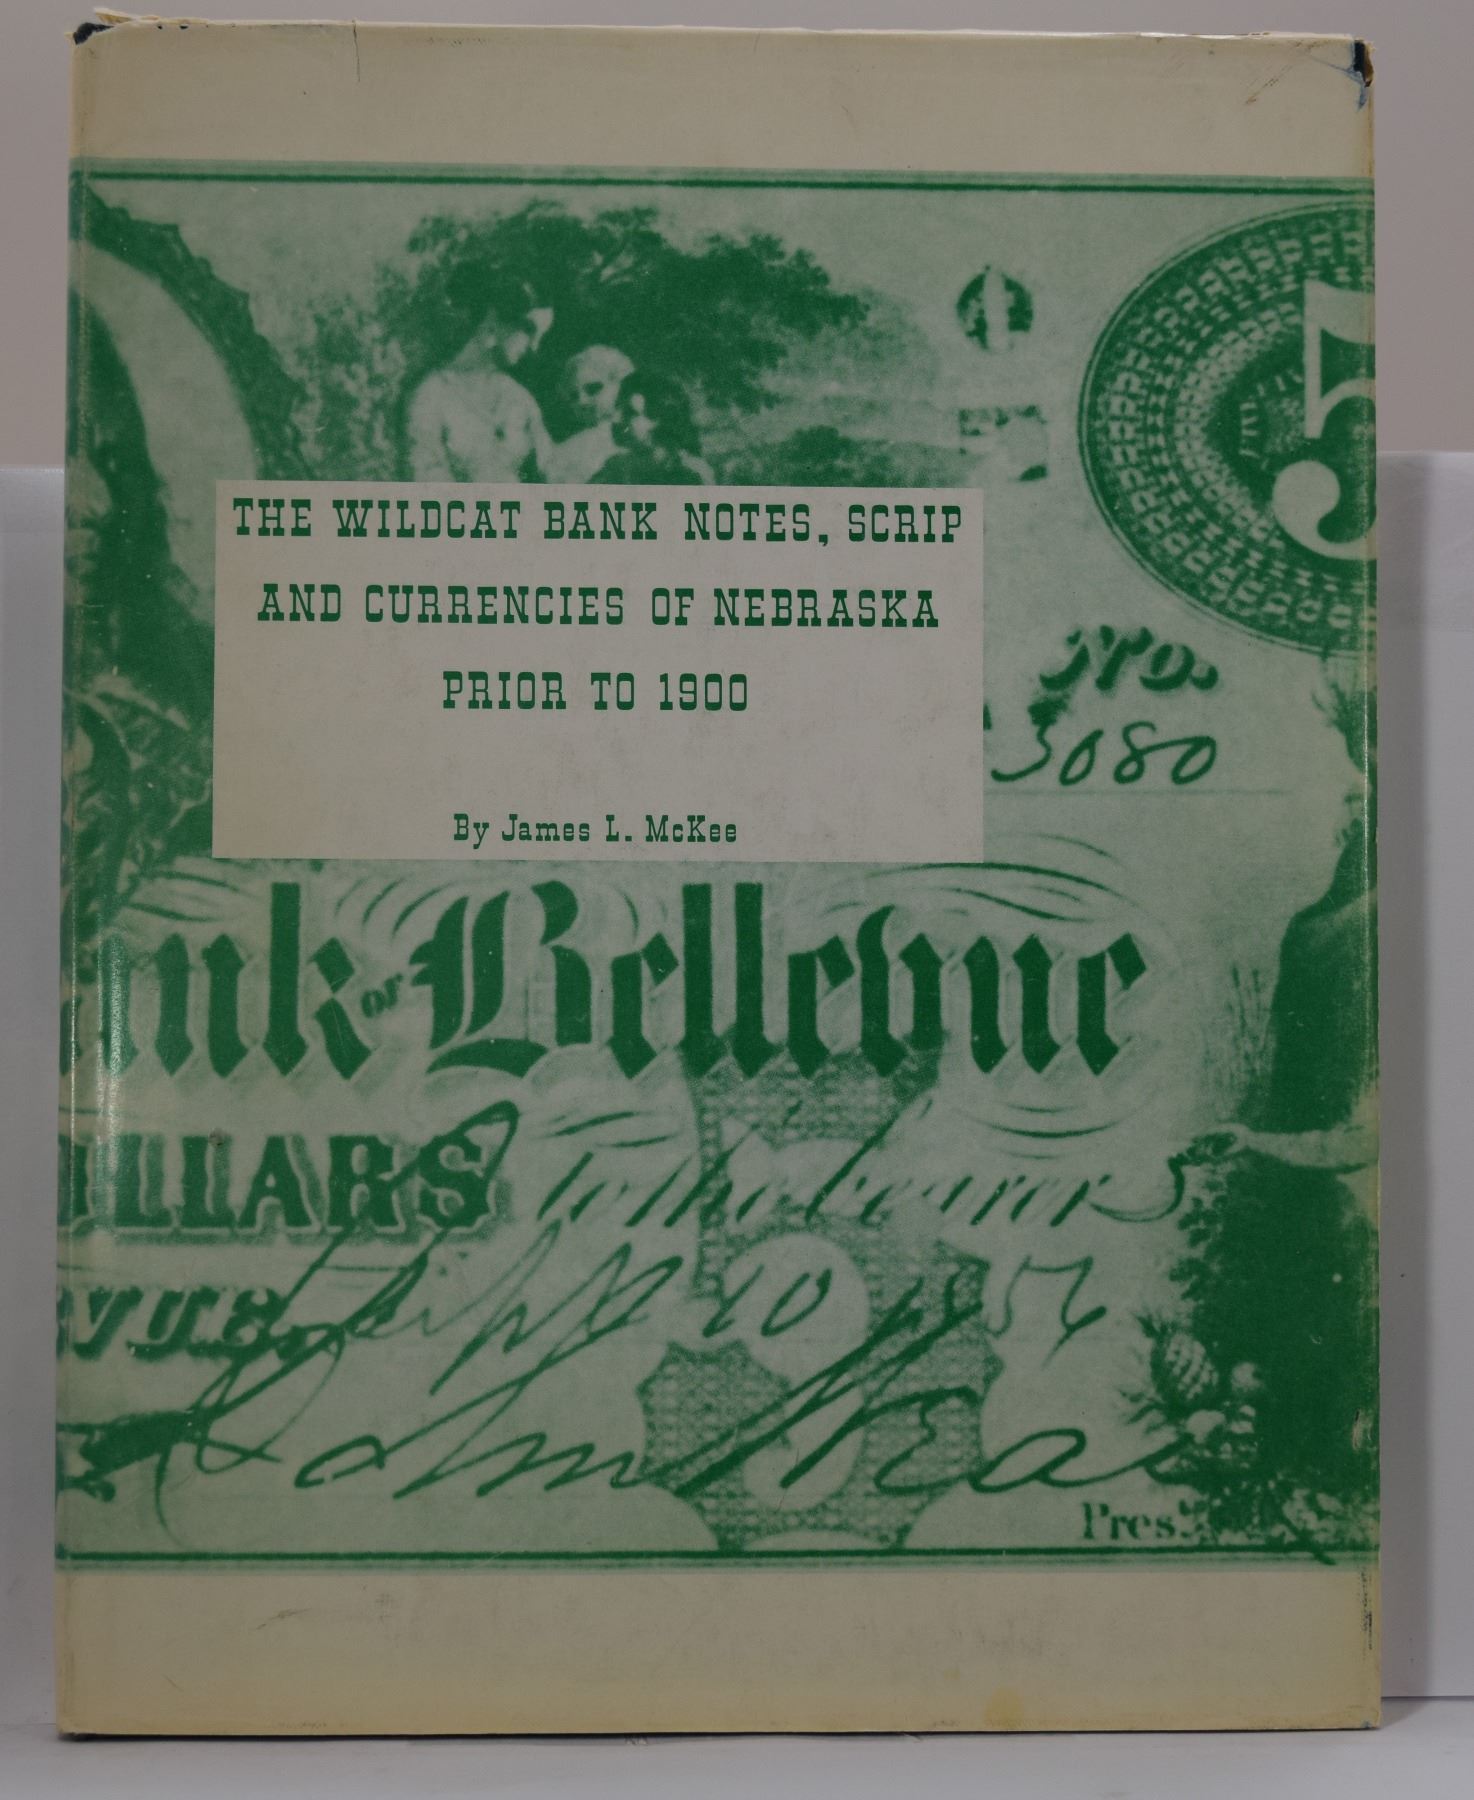 THE WILDCAT BANK NOTES, SCRIP
AND CURRENCIES OF NEBRASKA
PRIOR TO 1900
By James L. McKee
5
No.
3080
ank OF Bellevue
OLLARS To the bearer
VUE, Sept 10 1856
Pres.t